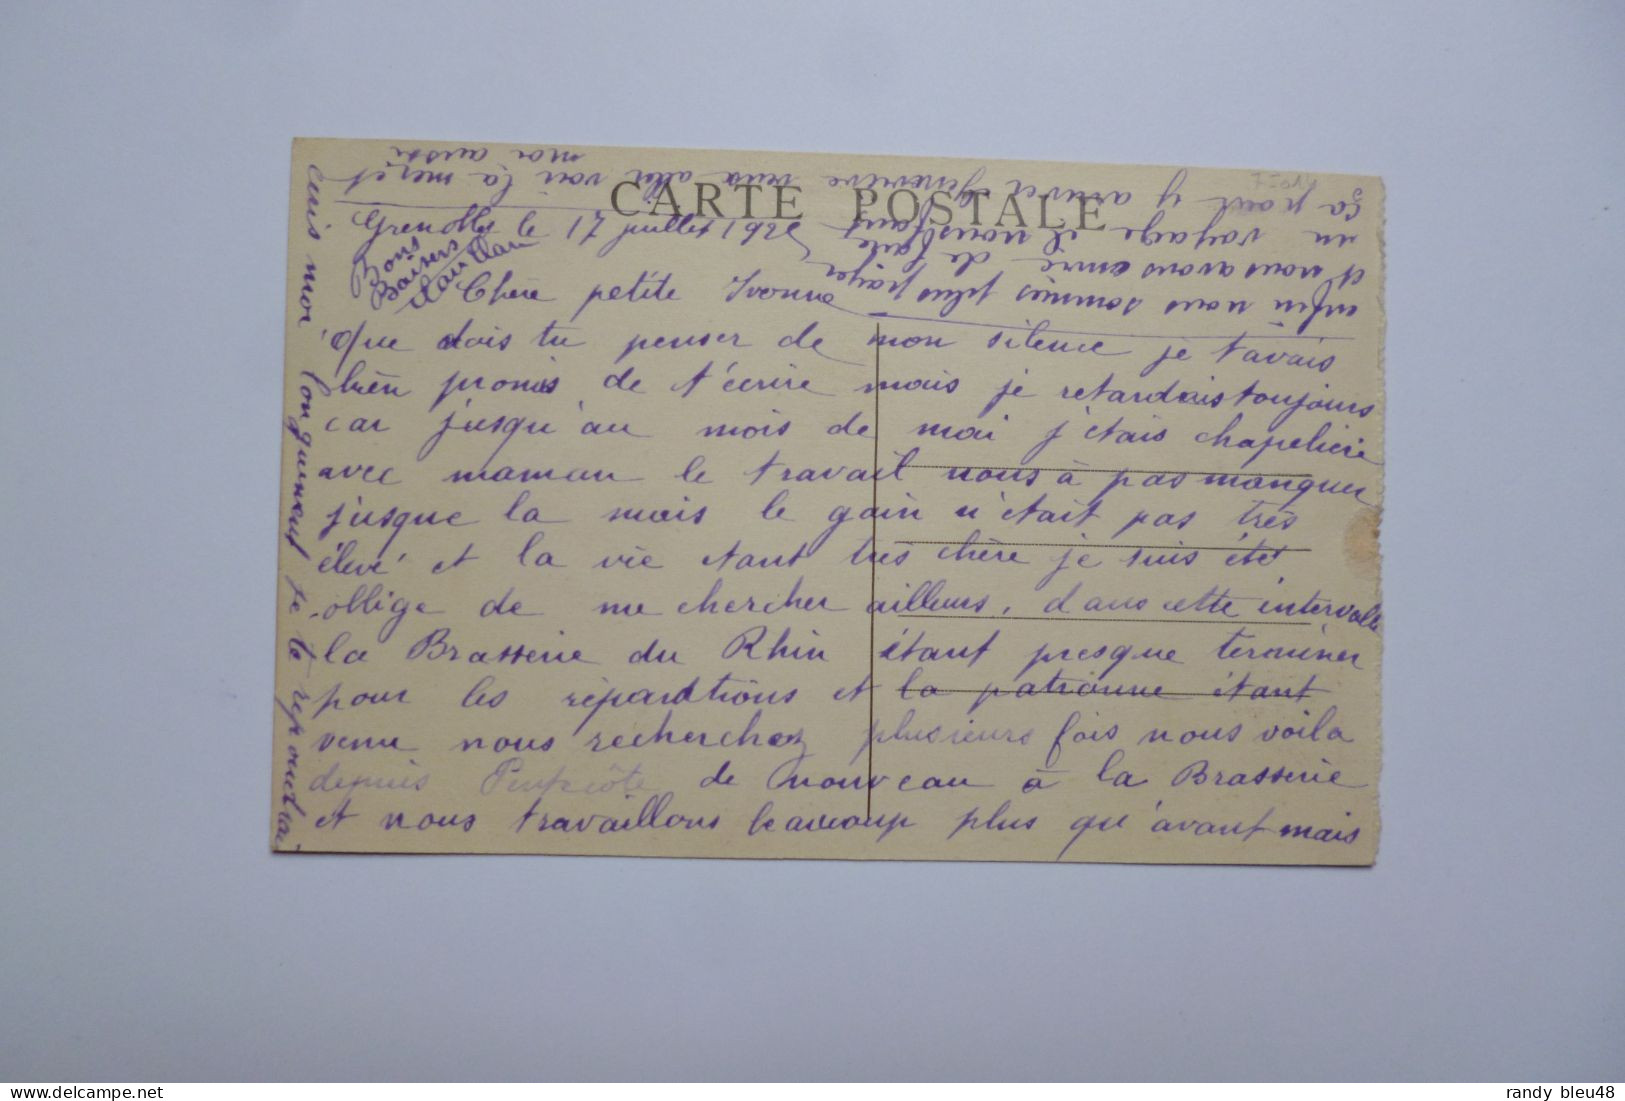 CARTE POSTALE
Grenoble le 17 juillet 192
Bons
Baisers
Chère petite Yvonne
Que dois tu penser de mon silence je t'avais
bien promis de t'écrire mais je retardais toujours
car jusqu'au mois de mai j'étais chapelière
avec maman le travail nous à pas manquer
jusque la mais le gain n'était pas très
élevé et la vie etant très chère je suis été
obligé de me chercher ailleurs, dans cette intervalle
la Brasserie du Rhin étant presque terminer
pour les réparations et la patronne étant
venu nous recherchez plusieurs fois nous voila
depuis Pentecôte de nouveau à la Brasserie
et nous travaillons beaucoup plus qu'avant mais
enfin nous sommes plus payer
et nous avons envie de faire
un voyage il nous faut
ça pour y arriver Geneviève
veux aller voir la mer et
moi aussi
écris moi longuement je te répondrai
randy bleu48